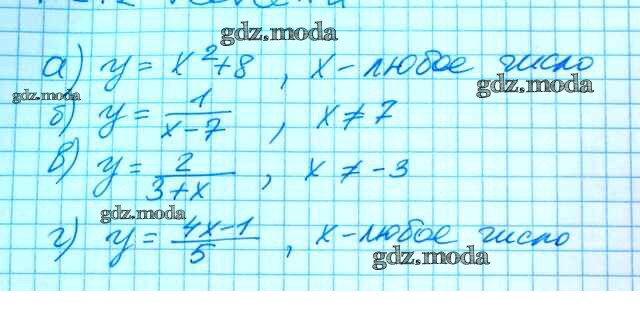 gdz.moda
а) y = x²+8 , x - любое число
gdz.moda
gdz.moda
б) y = 1/(x-7) , x ≠ 7
в) y = 2/(3+x) , x ≠ -3
gdz.moda
г) y = (4x-1)/5 , x - любое число
gdz.moda